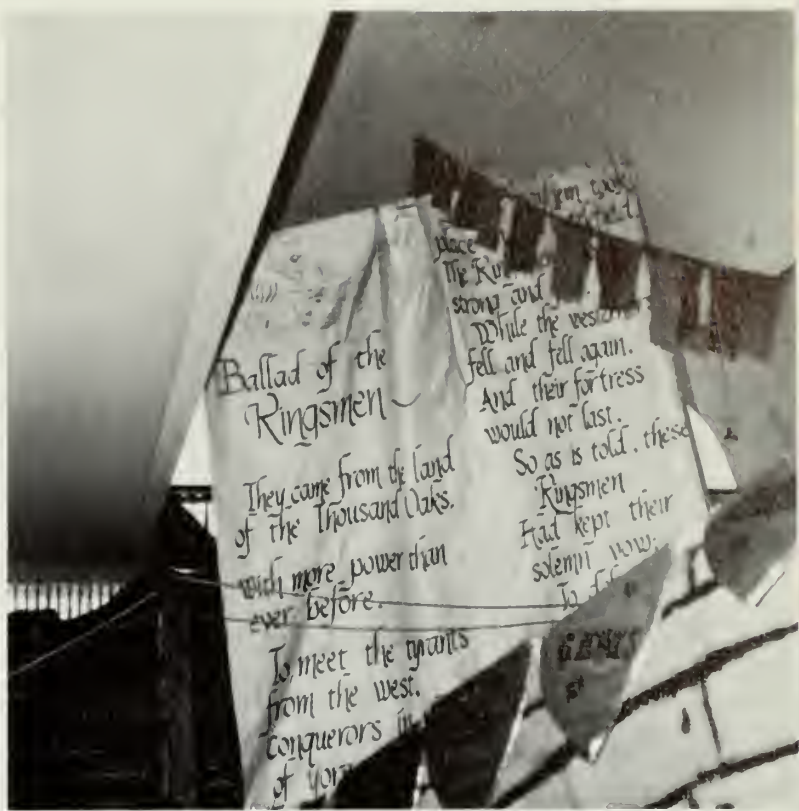 Ballad of the
Kingsmen
They came from the land
of the Thousand Oaks.
with more power than
ever before.
To meet the tyrants
from the west.
conquerors in
of
place
The
strong and
While the
fell and fell again.
And their fortress
would not last.
So as is told. these
Kingsmen
Had kept their
solemn vow.
To